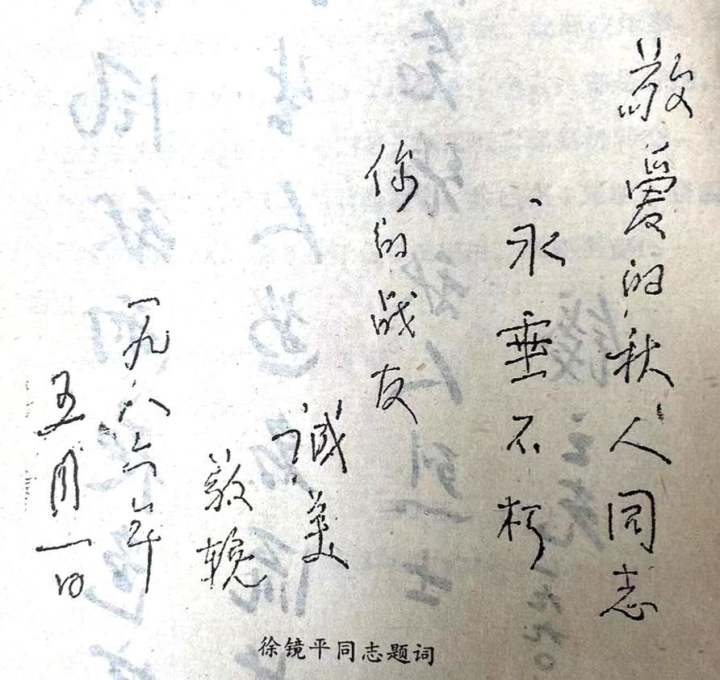 敬爱的秋人同志
永垂不朽
你的战友
诚美
敬挽
一九八六年
五月一日
徐镜平同志题词